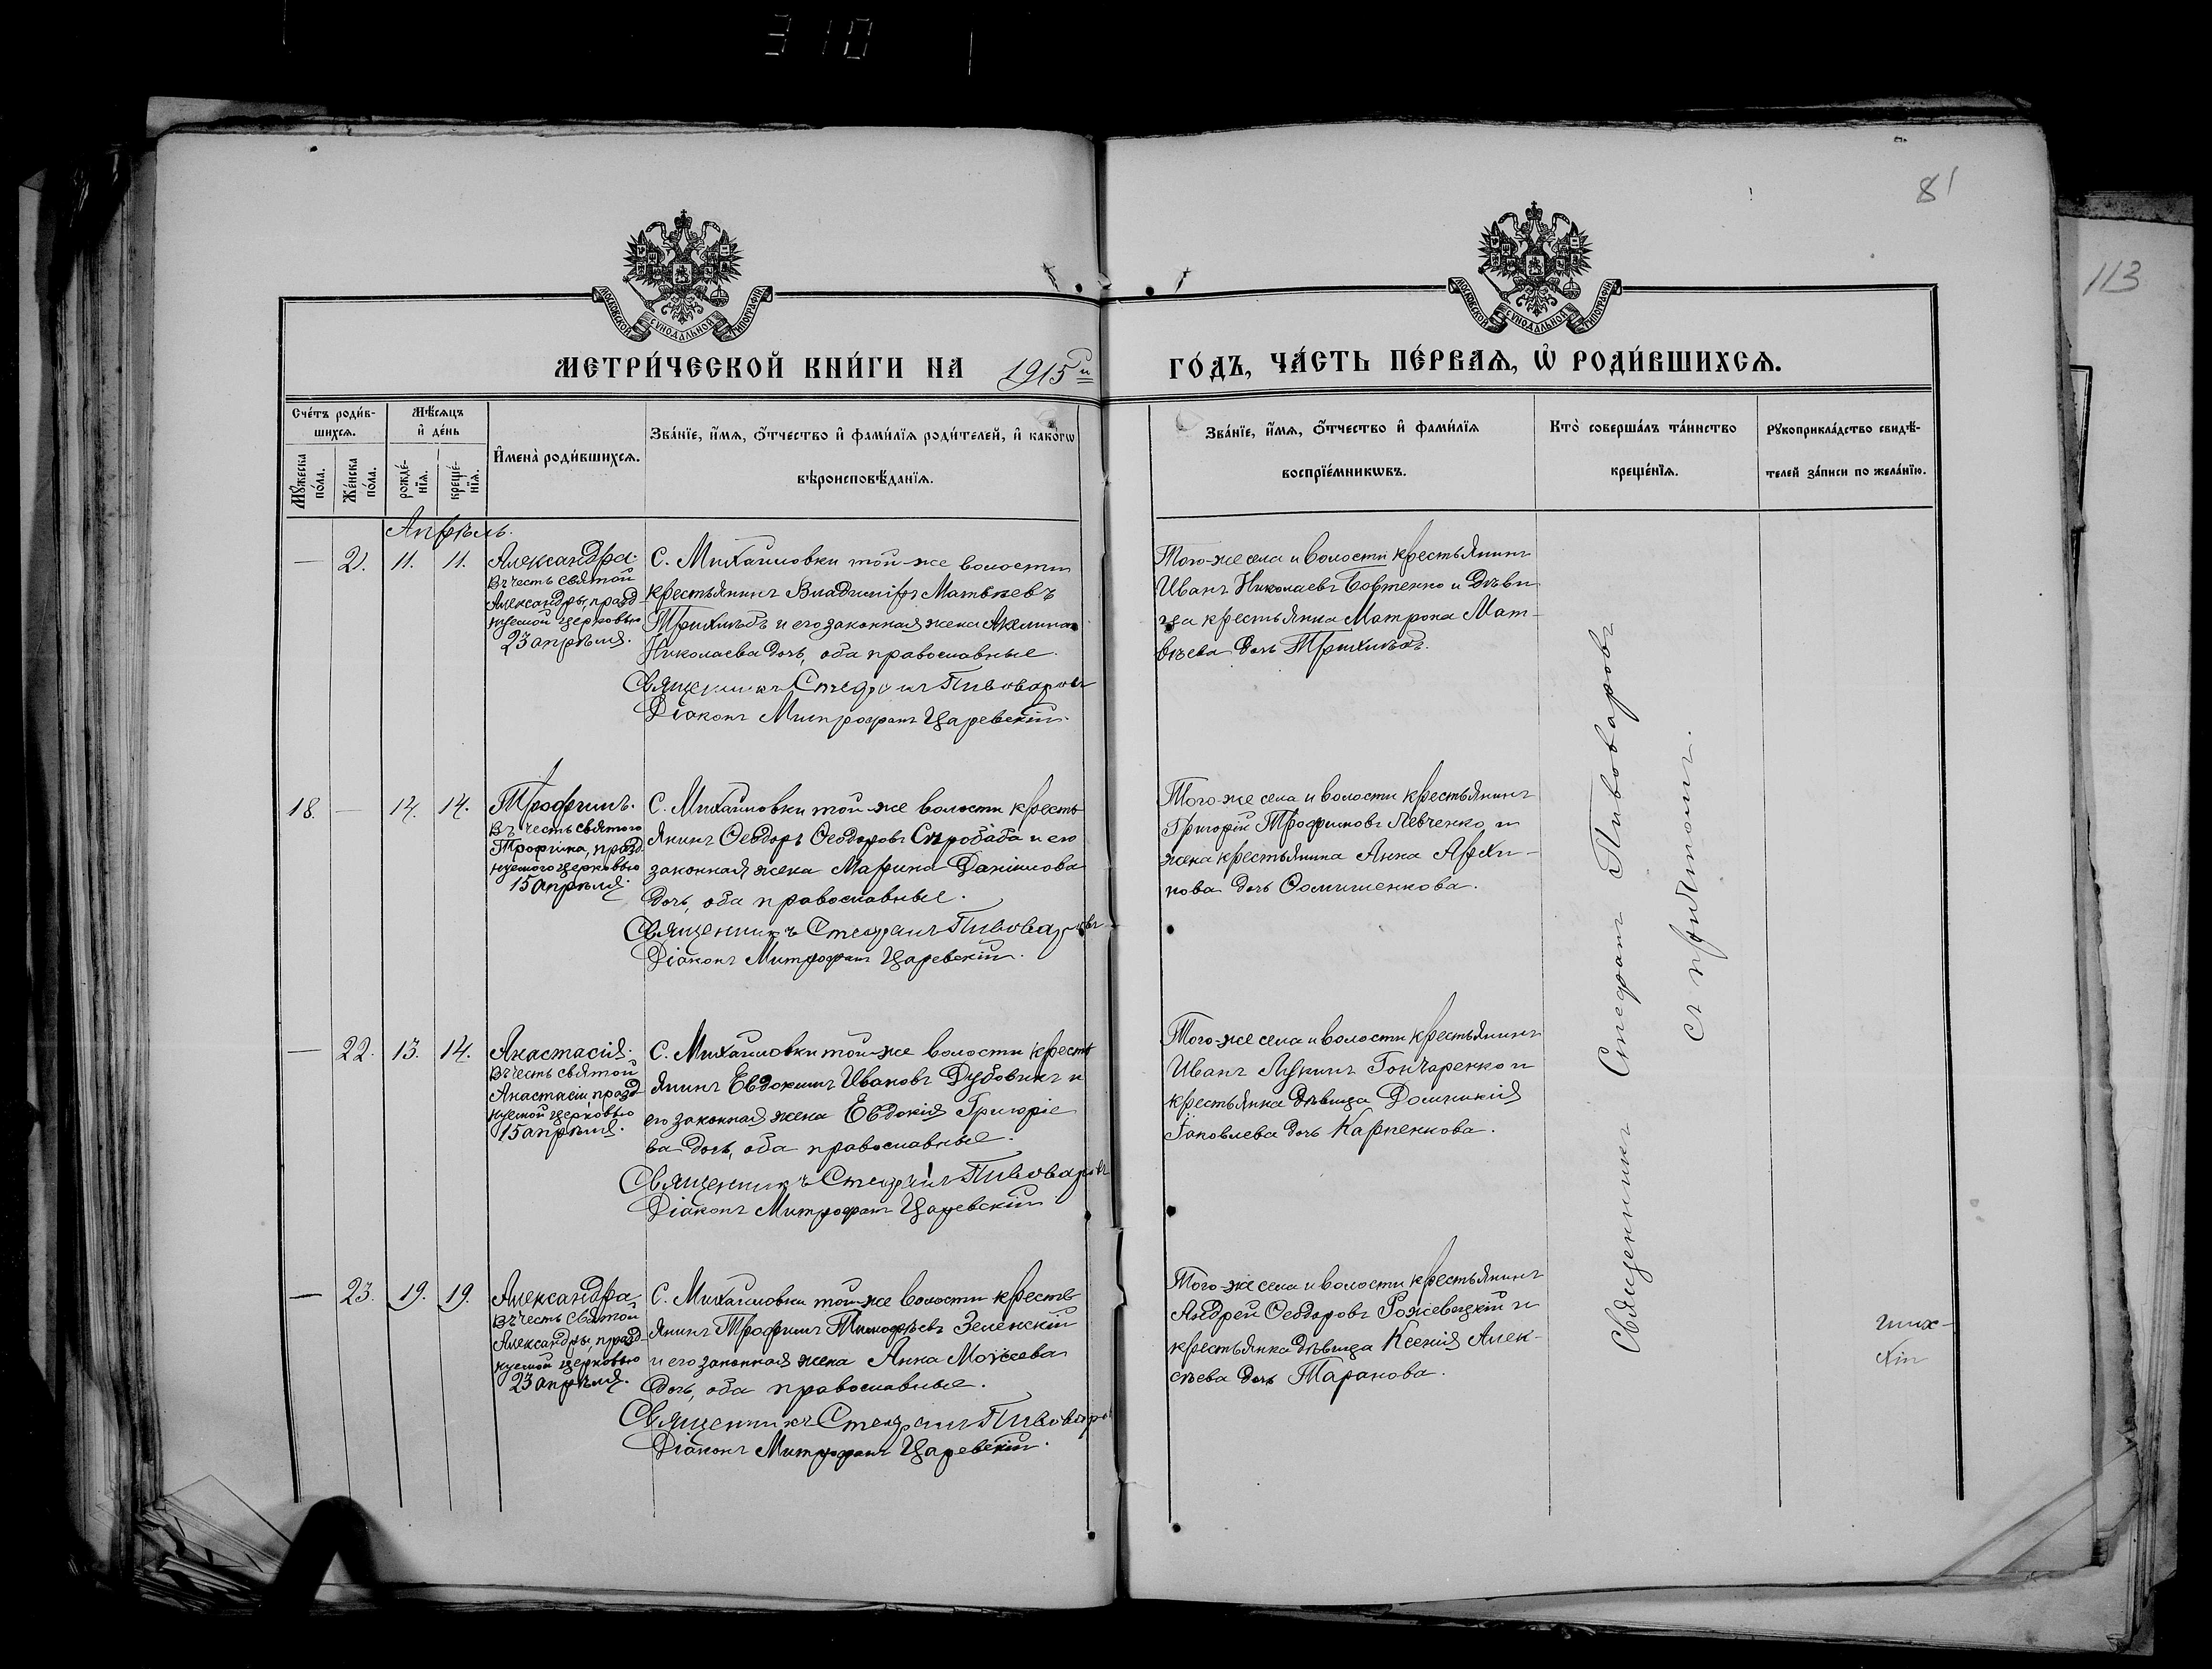 310
81
113
МОСКОВСКОЙ СѴНОДАЛЬНОЙ ТИПОГРАФІИ
МОСКОВСКОЙ СѴНОДАЛЬНОЙ ТИПОГРАФІИ
МЕТРИ́ЧЕСКОЙ КНИ́ГИ НА 1915й
ГО́ДЪ, ЧА́СТЬ ПЕ́РВАѦ, Ѡ҆ РОДИ́ВШИХСѦ.
Сче́тъ роди́в-
шихсѧ.
Мѣ́сѧцъ
и҆ де́нь
Мꙋ́жеска по́ла.
Же́нска по́ла.
рожде́-
нїѧ.
креще́-
нїѧ.
И҆мена̀ роди́вшихсѧ.
Зва́нїе, и҆́мѧ, ѻ҆́тчество и҆ фами́лїѧ роди́телей, и҆ како́гѡ
вѣроисповѣ́данїѧ.
Зва́нїе, и҆́мѧ, ѻ҆́тчество и҆ фами́лїѧ
воспрїе́мникѡвъ.
Кто̀ соверша́лъ та́инство
креще́нїѧ.
Рꙋкоприкла́дство свидѣ́-
телей за́писи по жела́нїю.
Апрѣль.
— 2. 11. 11.
Александра.
Въ честь святой
Александры, празд-
нуемой церковью
23 апрѣля.
С. Михайловки той-же волости
крестьянинъ Владиміръ Матвѣевъ
и его законная жена Акилина
Николаева дочь, оба православные.
Священникъ Стефанъ Пивоваровъ
Діаконъ Митрофанъ Царевскій.
Того-же села и волости крестьянинъ
Иванъ Николаевъ Бовтенко и дѣви-
ца крестьянка Матрона Мат-
вѣева дочь
18. — 14. 14.
Трофимъ.
Въ честь святого
Трофима, празд-
нуемого церковью
15 апрѣля.
С. Михайловки той-же волости кресть-
янинъ Ѳеодоръ Ѳеодоровъ и его
законная жена Марина Даніилова
дочь, оба православные.
Священникъ Стефанъ Пивоваровъ
Діаконъ Митрофанъ Царевскій.
Того-же села и волости крестьянинъ
Григорій Трофимовъ Левченко и
жена крестьянина Анна Архи-
пова дочь Ѳомишенкова.
— 22. 13. 14.
Анастасія.
Въ честь святой
Анастасіи, празд-
нуемой церковью
15 апрѣля.
С. Михайловки той-же волости кресть-
янинъ Евдокимъ Ивановъ Дубовикъ и
его законная жена Евдокія Григоріе-
ва дочь, оба православные.
Священникъ Стефанъ Пивоваровъ
Діаконъ Митрофанъ Царевскій
Того-же села и волости крестьянинъ
Иванъ Лукинъ Гончаренко и
крестьянка дѣвица Домникія
Іаковлева дочь Карпенкова.
— 23. 19. 19.
Александра
Въ честь святой
Александры, празд-
нуемой церковью
23 апрѣля.
С. Михайловки той-же волости кресть-
янинъ Трофимъ Тимофѣевъ Зеленскій
и его законная жена Анна Моѵсеева
дочь, оба православные.
Священникъ Стефанъ Пивоваровъ
Діаконъ Митрофанъ Царевскій.
Того-же села и волости крестьянинъ
Андрей Ѳеодоровъ Рожевецкій и
крестьянка дѣвица Ксенія Алек-
сѣева дочь Таранова.
Священникъ Стефанъ Пивоваровъ
съ причтомъ.